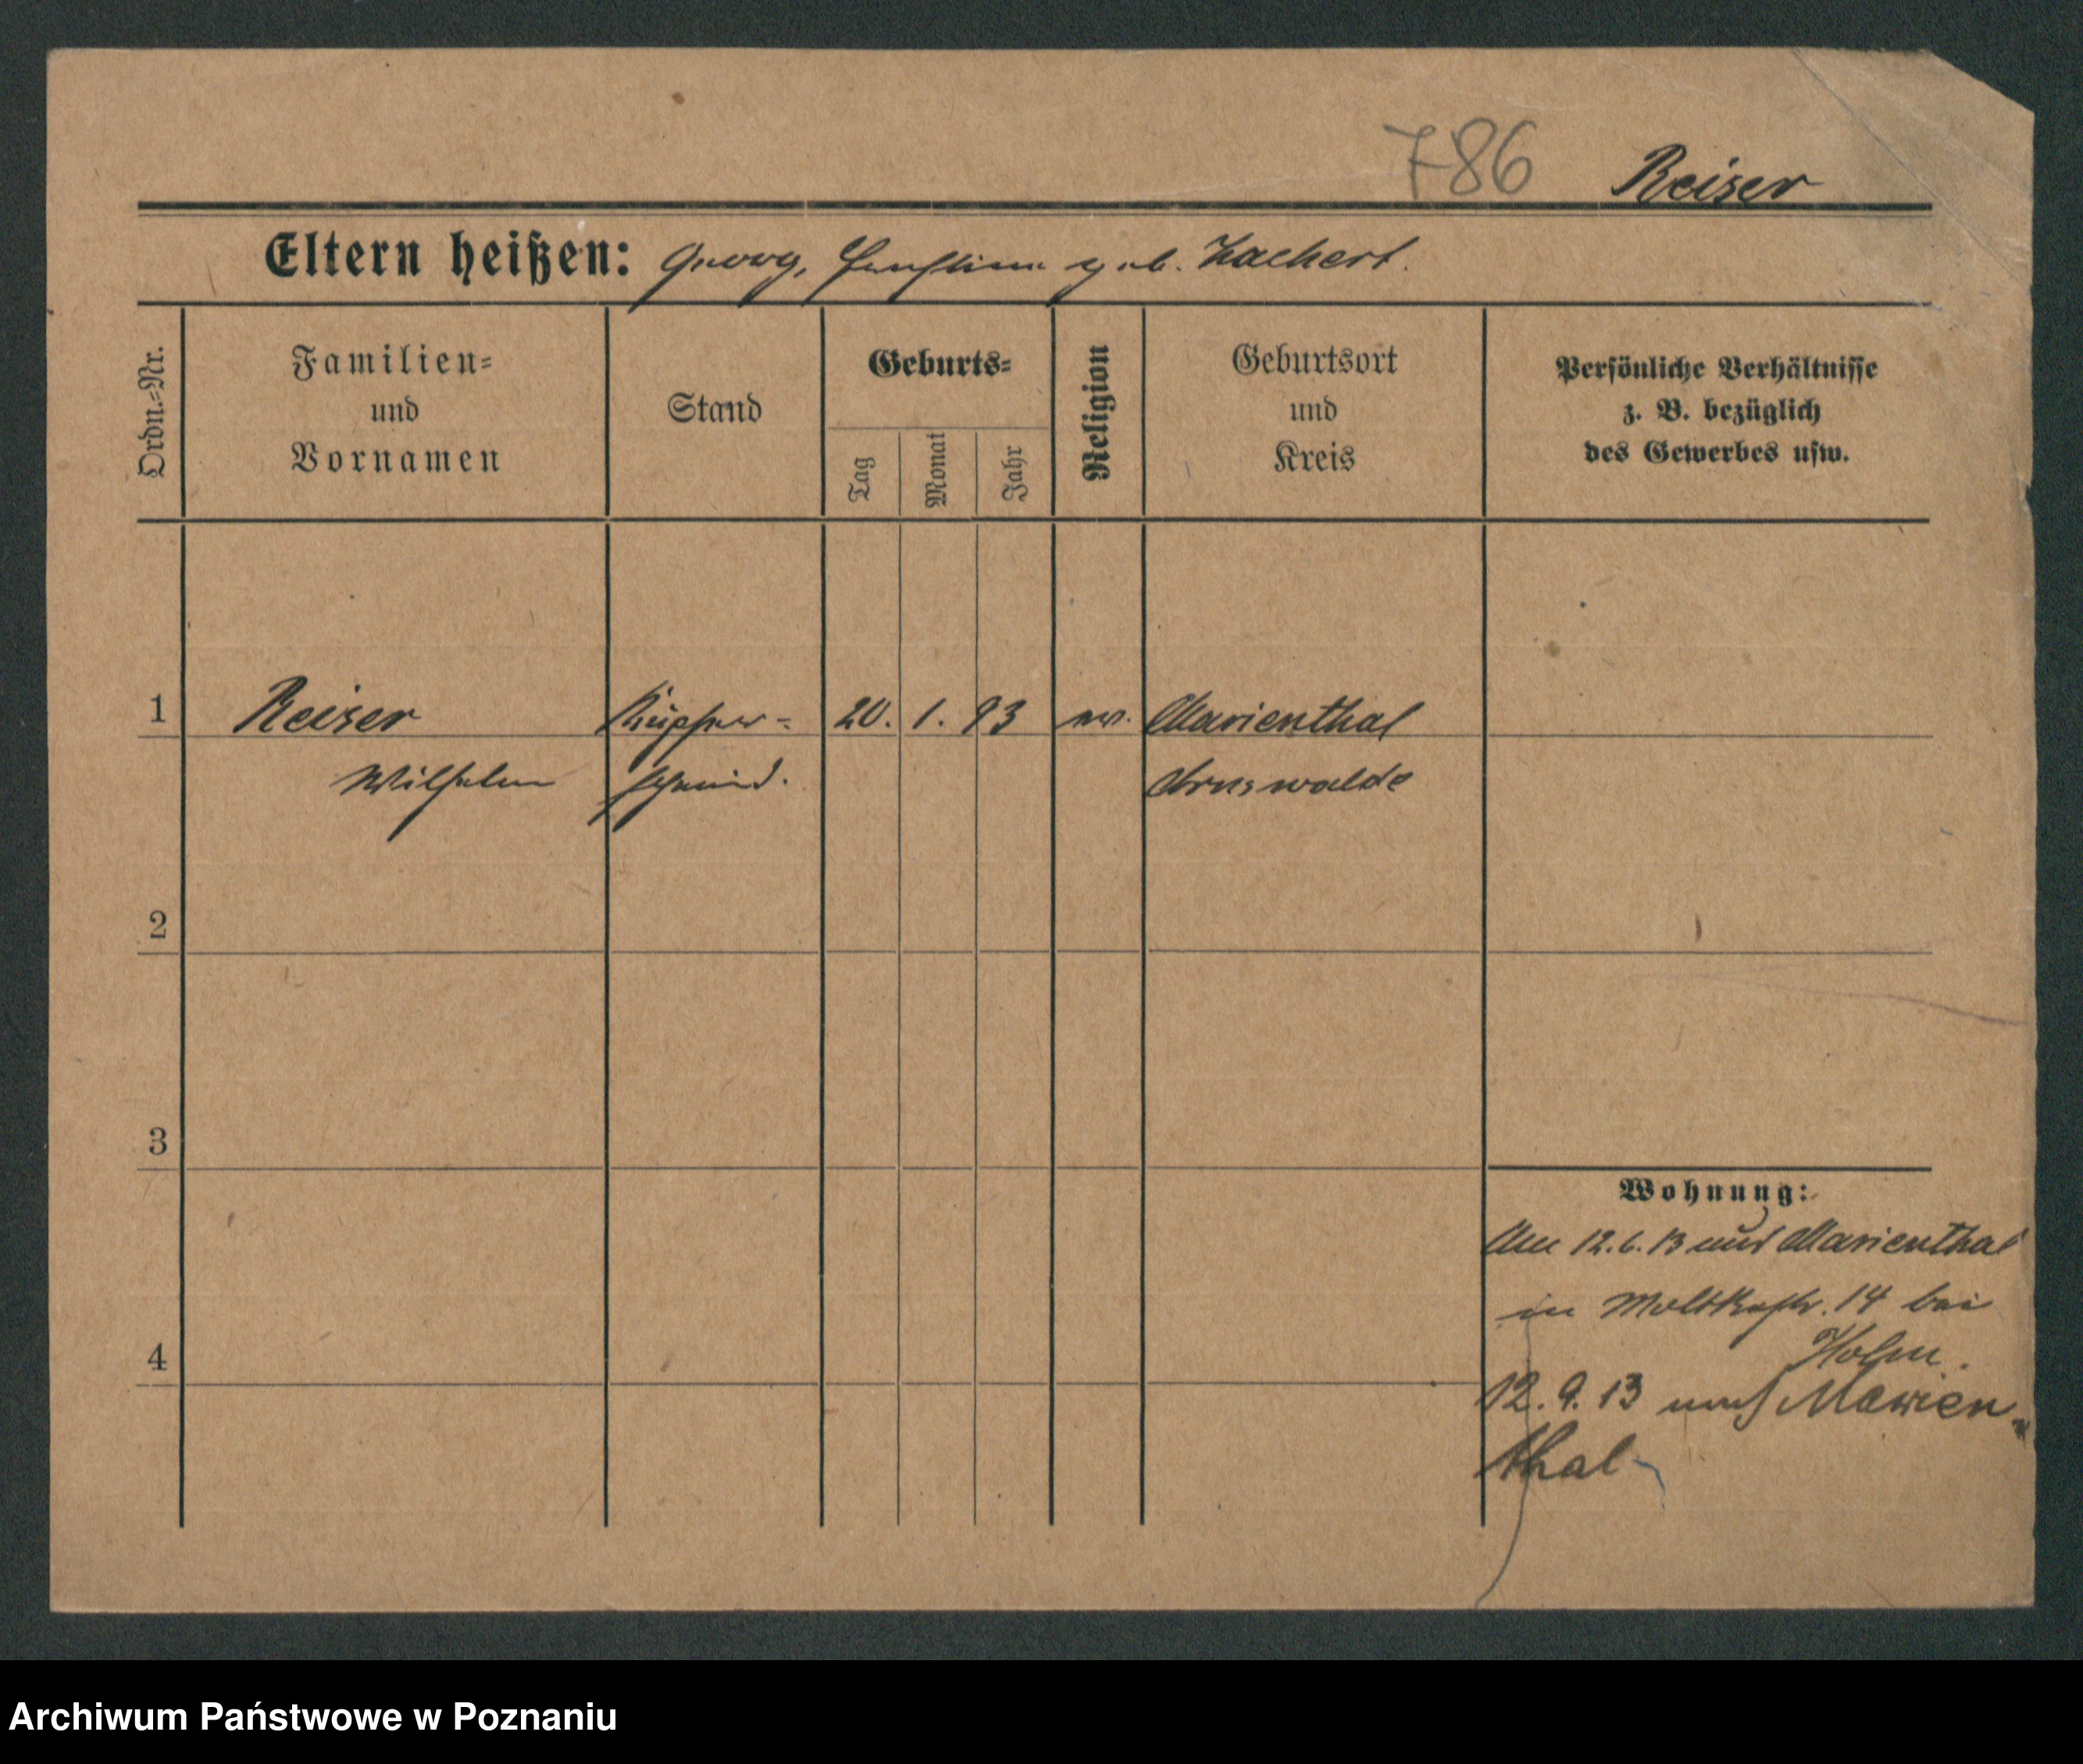 786 Reiser
Eltern heißen: Georg, geb. Zachert.
Ordn.-Nr.
Familien-
und
Vornamen
Stand
Geburts-
Tag
Monat
Jahr
Religion
Geburtsort
und
Kreis
Persönliche Verhältnisse
z. B. bezüglich
des Gewerbes usw.
1 Reiser Kupfer- 20. 1. 93 ev. Marienthal
Wilhelm schmied. Arnswalde
2
3
Wohnung:
12.6.13 aus Marienthal
in Moltkestr. 14 bei
4
12.9.13 nach Marien-
thal
Archiwum Państwowe w Poznaniu